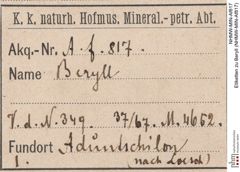 K. k. naturh. Hofmus. Mineral.-petr. Abt.
Akq.-Nr. A. f. 817.
Name Beryll
V. d. N. 349. 37/67. M. 4652.
Fundort Aduntschilon
1. (nach Loesch)
NHMW-MIN-Af817
Etiketten zu Beryll (NHMW-MIN-Af817)
nhm